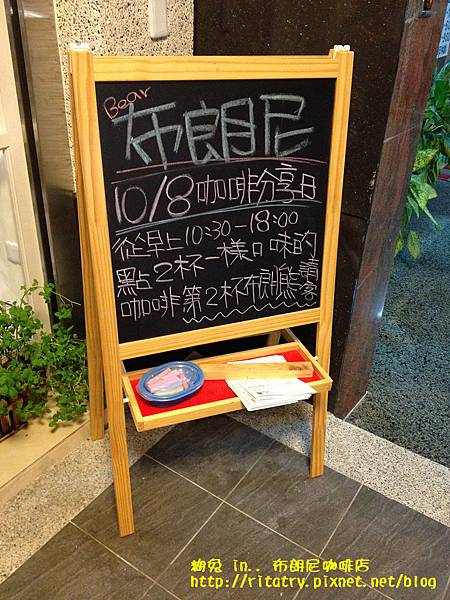 Bear
布朗尼
10/8咖啡分享日
從早上10:30-18:00
點2杯一樣口味的
咖啡第2杯布朗熊請客
糊兔 in.. 布朗尼咖啡店
http://ritatry.pixnet.net/blog